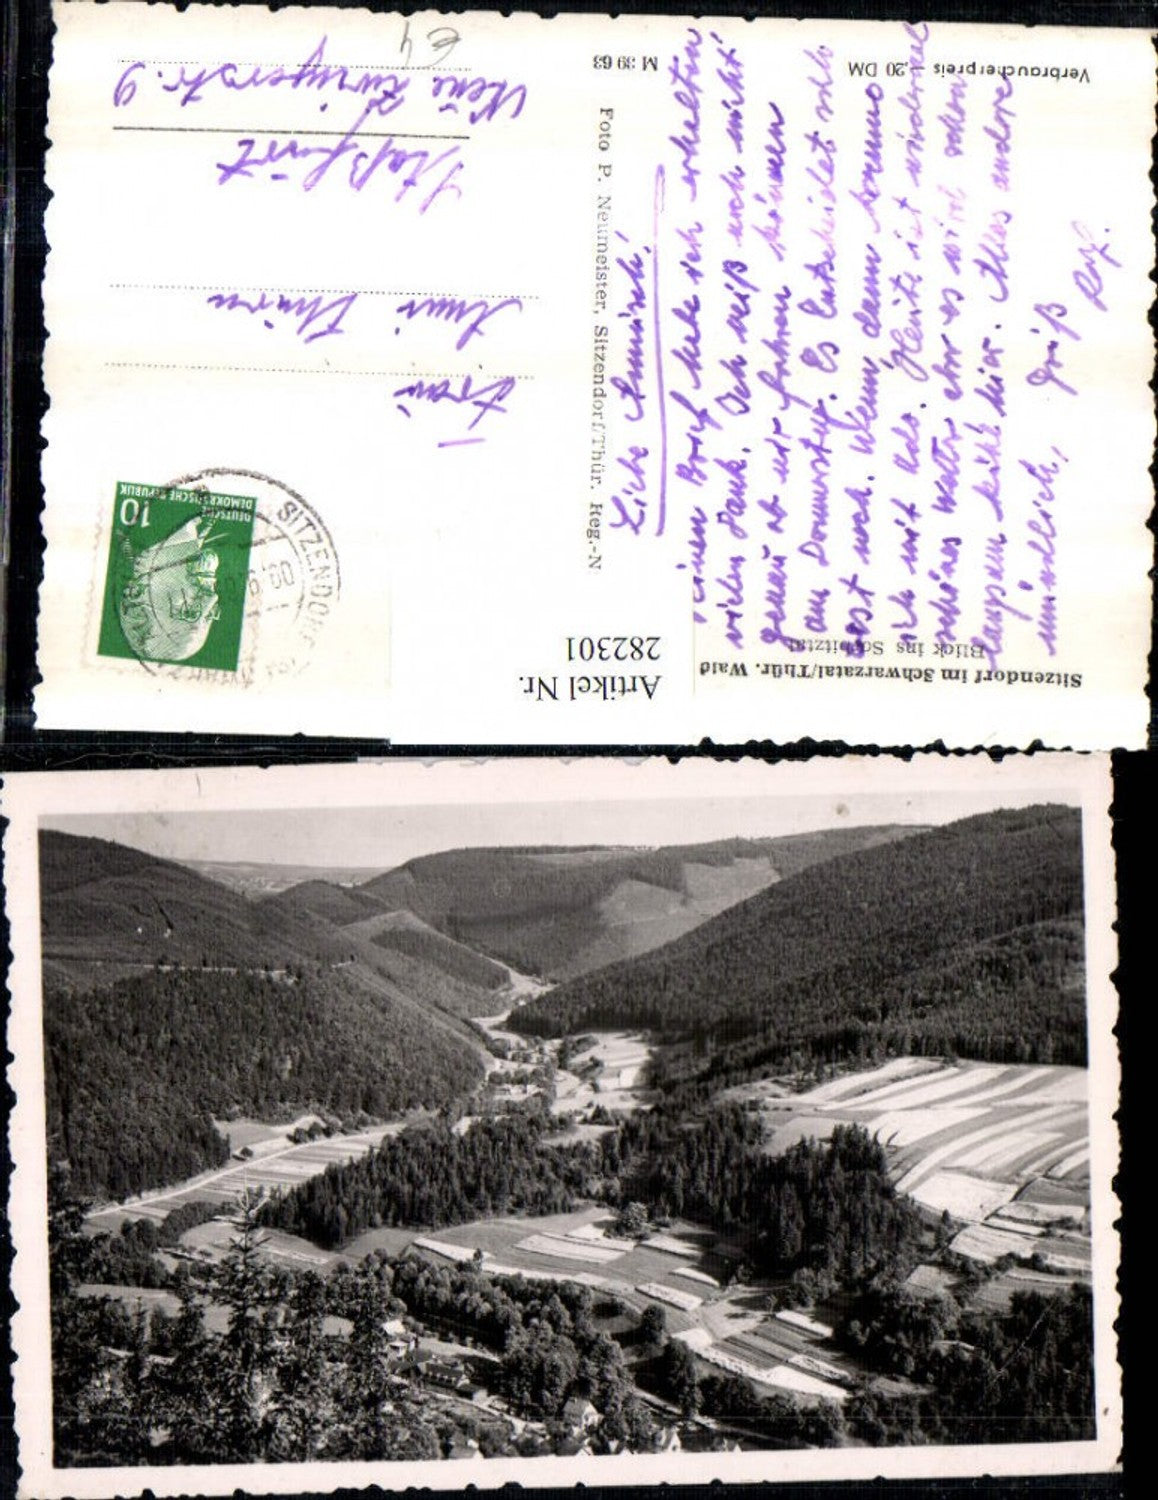 Sitzendorf im Schwarzatal/Thür. Wald
Blick ins Sorbitztal
Artikel Nr.
282301
Liebe Annmirl!
Deinen Brief habe ich erhalten
vielen Dank. Ich weiß noch nicht
genau ob wir fahren können
am Donnerstag. Es Entscheidet sich
erst noch. Wenn dann komme
ich mit Udo. Heute ist nicht mal
schönes Wetter aber es wird schon
langsam kühl hier. Alles andere
mündlich,
Gruß
Verbraucherpreis -,20 DM
Foto P. Neumeister, Sitzendorf/Thür. Reg.-N
M 39 63
DEUTSCHE
DEMOKRATISCHE REPUBLIK
10
SITZENDORF
60
Frau
Staßfurt
9
€4